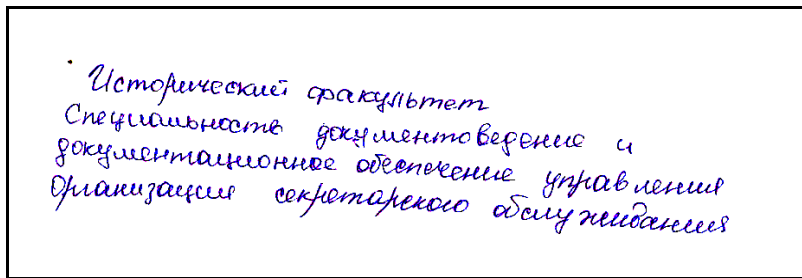 Исторический факультет
Специальность документоведение и
документационное обеспечение управления
Организация секретарского обслуживания